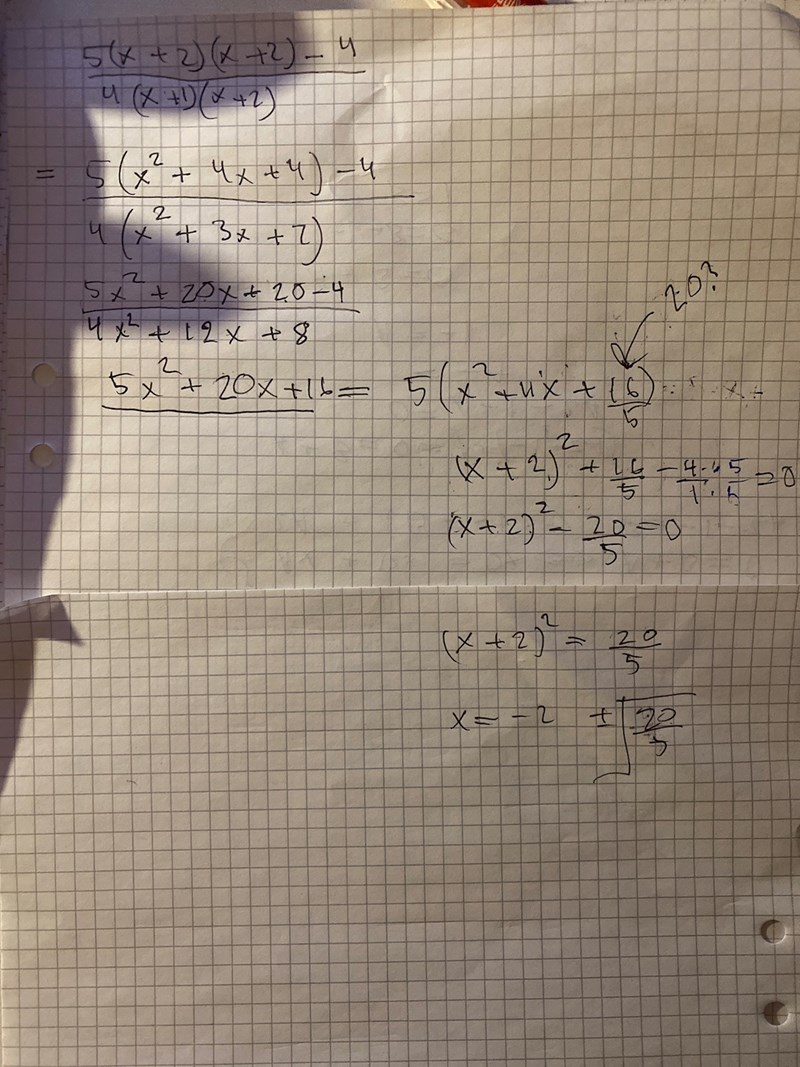 5(x + 2)(x + 2) - 4
4 (x+1)(x+2)
= 5(x² + 4x + 4) - 4
4(x² + 3x + 2)
5x² + 20x + 20 - 4
4x² + 12x + 8
20?
5x² + 20x + 16 = 5(x² + 4x + 16/5)
(x + 2)² + 16/5 - 4·5/1·5 = 0
(x + 2)² - 20/5 = 0
(x + 2)² = 20/5
x = -2 ± √20/5